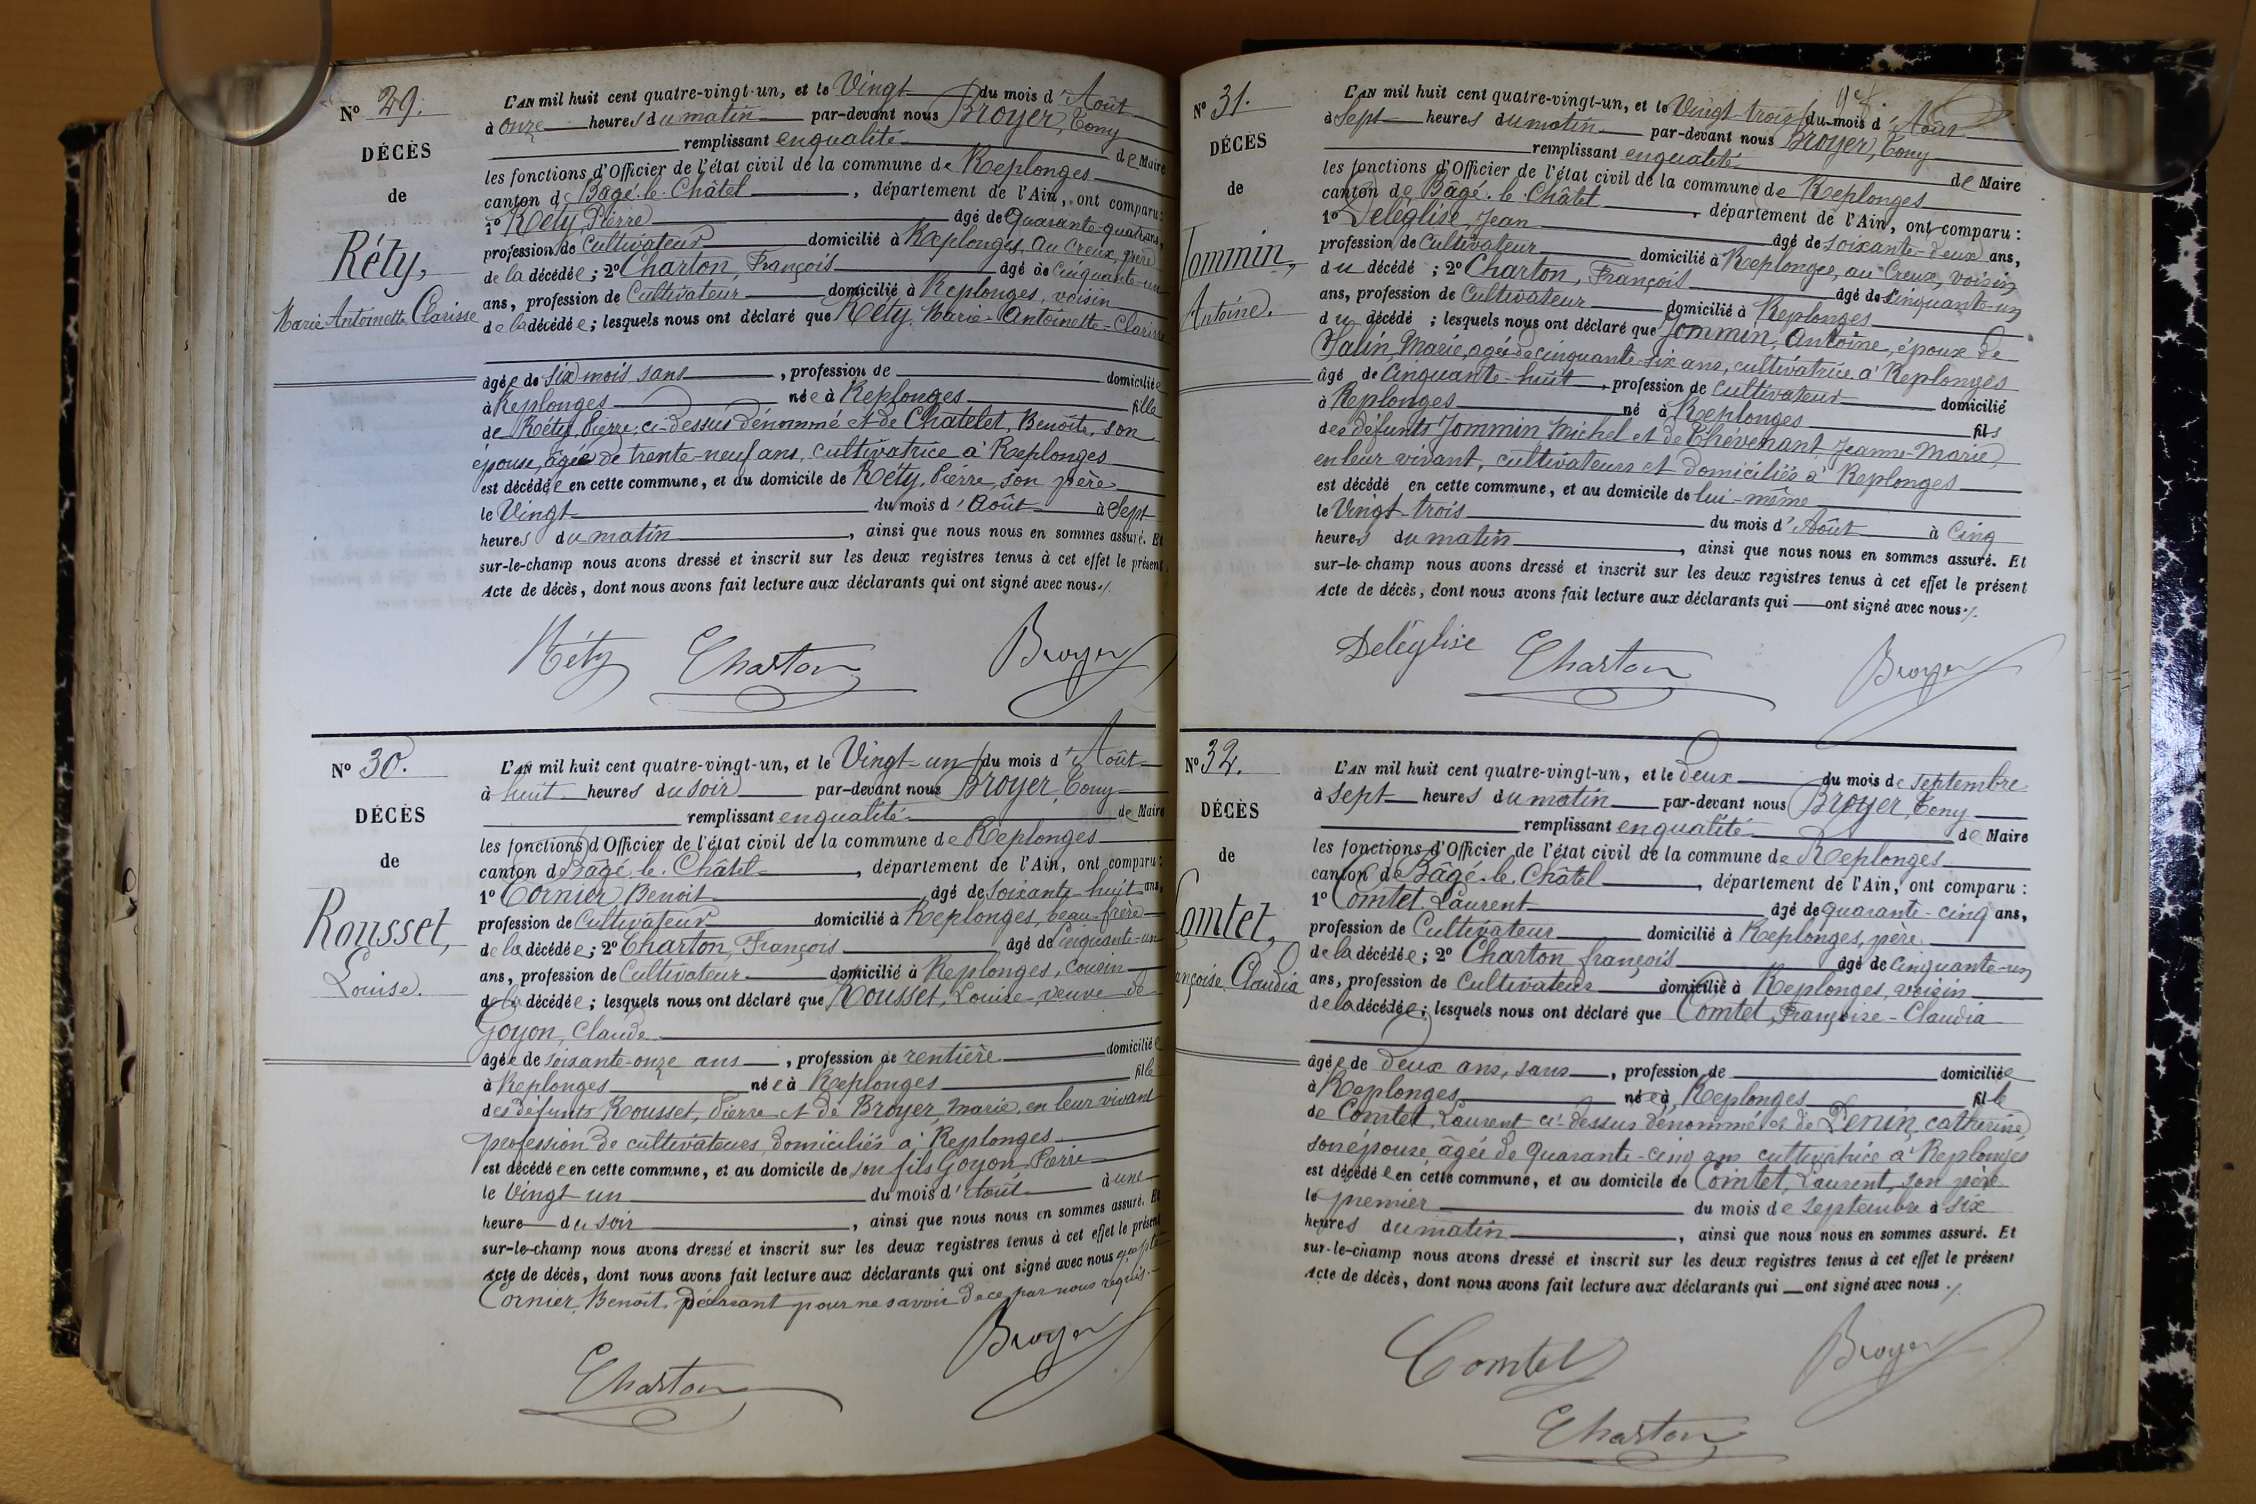 No 29.
DÉCÈS
de
Réty,
Marie Antoinette Clarisse
L'AN mil huit cent quatre-vingt-un, et le Vingt du mois d'Août
à onze heures du matin par-devant nous Broyer, Tony
remplissant en qualité de Maire
les fonctions d'Officier de l'état civil de la commune de Replonges
canton de Bâgé-le-Châtel, département de l'Ain, ont comparu :
1º Réty, Pierre âgé de Quarante-quatre ans,
profession de cultivateur domicilié à Replonges, au Creux, père
de la décédée ; 2º Charton, François âgé de Cinquante-un
ans, profession de Cultivateur domicilié à Replonges, voisin
de la décédée ; lesquels nous ont déclaré que Réty, Marie-Antoinette-Clarisse
âgée de six mois sans, profession de domiciliée
à Replonges née à Replonges fille
de Réty, Pierre, ci-dessus dénommé et de Chatelet, Benoîte, son
épouse, âgée de trente-neuf ans, cultivatrice à Replonges
est décédée en cette commune, et au domicile de Réty, Pierre, son père
le Vingt du mois d'Août à Sept
heures du matin, ainsi que nous nous en sommes assuré. Et
sur-le-champ nous avons dressé et inscrit sur les deux registres tenus à cet effet le présent
Acte de décès, dont nous avons fait lecture aux déclarants qui ont signé avec nous./.
Réty Charton Broyer
No 30.
DÉCÈS
de
Rousset,
Louise.
L'AN mil huit cent quatre-vingt-un, et le Vingt-un du mois d'Août
à huit heures du soir par-devant nous Broyer, Tony
remplissant en qualité de Maire
les fonctions d'Officier de l'état civil de la commune de Replonges
canton de Bâgé-le-Châtel, département de l'Ain, ont comparu :
1º Cornier, Benoit âgé de soixante-huit ans,
profession de cultivateur domicilié à Replonges, beau-frère
de la décédée ; 2º Charton, François âgé de Cinquante-un
ans, profession de Cultivateur domicilié à Replonges, cousin
de la décédée ; lesquels nous ont déclaré que Rousset, Louise, veuve de
Goyon, Claude
âgée de soixante-onze ans, profession de rentière domiciliée
à Replonges née à Replonges fille
des défunts Rousset, Pierre et de Broyer, Marie, en leur vivant
profession de cultivateurs, domiciliés à Replonges
est décédée en cette commune, et au domicile de son fils Goyon, Pierre
le Vingt-un du mois d'Août à une
heure du soir, ainsi que nous nous en sommes assuré. Et
sur-le-champ nous avons dressé et inscrit sur les deux registres tenus à cet effet le présent
Acte de décès, dont nous avons fait lecture aux déclarants qui ont signé avec nous excepté
Cornier, Benoit, déclarant pour ne savoir de ce par nous requis.
Charton Broyer
No 31.
DÉCÈS
de
Jommin,
Antoine.
L'AN mil huit cent quatre-vingt-un, et le Vingt-trois du mois d'Août
à Sept heures du matin par-devant nous Broyer, Tony
remplissant en qualité de Maire
les fonctions d'Officier de l'état civil de la commune de Replonges
canton de Bâgé-le-Châtel, département de l'Ain, ont comparu :
1º Deléglise, Jean âgé de soixante-deux ans,
profession de cultivateur domicilié à Replonges, au Creux, voisin
du décédé ; 2º Charton, François âgé de Cinquante-un
ans, profession de Cultivateur domicilié à Replonges
du décédé ; lesquels nous ont déclaré que Jommin, Antoine, époux de
Salin, Marie, agée de cinquante-six ans, cultivatrice à Replonges
âgé de Cinquante-huit, profession de cultivateur domicilié
à Replonges né à Replonges fils
des défunts Jommin Michel et de Thévenant, Jeanne-Marie,
en leur vivant, cultivateurs et domiciliés à Replonges
est décédé en cette commune, et au domicile de lui-même
le Vingt-trois du mois d'Août à Cinq
heures du matin, ainsi que nous nous en sommes assuré. Et
sur-le-champ nous avons dressé et inscrit sur les deux registres tenus à cet effet le présent
Acte de décès, dont nous avons fait lecture aux déclarants qui ont signé avec nous./.
Deléglise Charton Broyer
No 32.
DÉCÈS
de
Comtet,
Claudia
L'AN mil huit cent quatre-vingt-un, et le deux du mois de septembre
à sept heures du matin par-devant nous Broyer, Tony
remplissant en qualité de Maire
les fonctions d'Officier de l'état civil de la commune de Replonges
canton de Bâgé-le-Châtel, département de l'Ain, ont comparu :
1º Comtet, Laurent âgé de quarante-cinq ans,
profession de Cultivateur domicilié à Replonges, père
de la décédée ; 2º Charton françois âgé de cinquante-un
ans, profession de Cultivateur domicilié à Replonges, voisin
de la décédée ; lesquels nous ont déclaré que Comtet, Françoise-Claudia
âgée de deux ans, sans, profession de domiciliée
à Replonges née à Replonges fille
de Comtet, Laurent ci-dessus dénommé et de Penin, catherine
son épouse, âgée de Quarante-cinq ans cultivatrice à Replonges
est décédée en cette commune, et au domicile de Comtet, Laurent, son père
le premier du mois de septembre à six
heures du matin, ainsi que nous nous en sommes assuré. Et
sur-le-champ nous avons dressé et inscrit sur les deux registres tenus à cet effet le présent
Acte de décès, dont nous avons fait lecture aux déclarants qui ont signé avec nous./.
Comtet Broyer
Charton